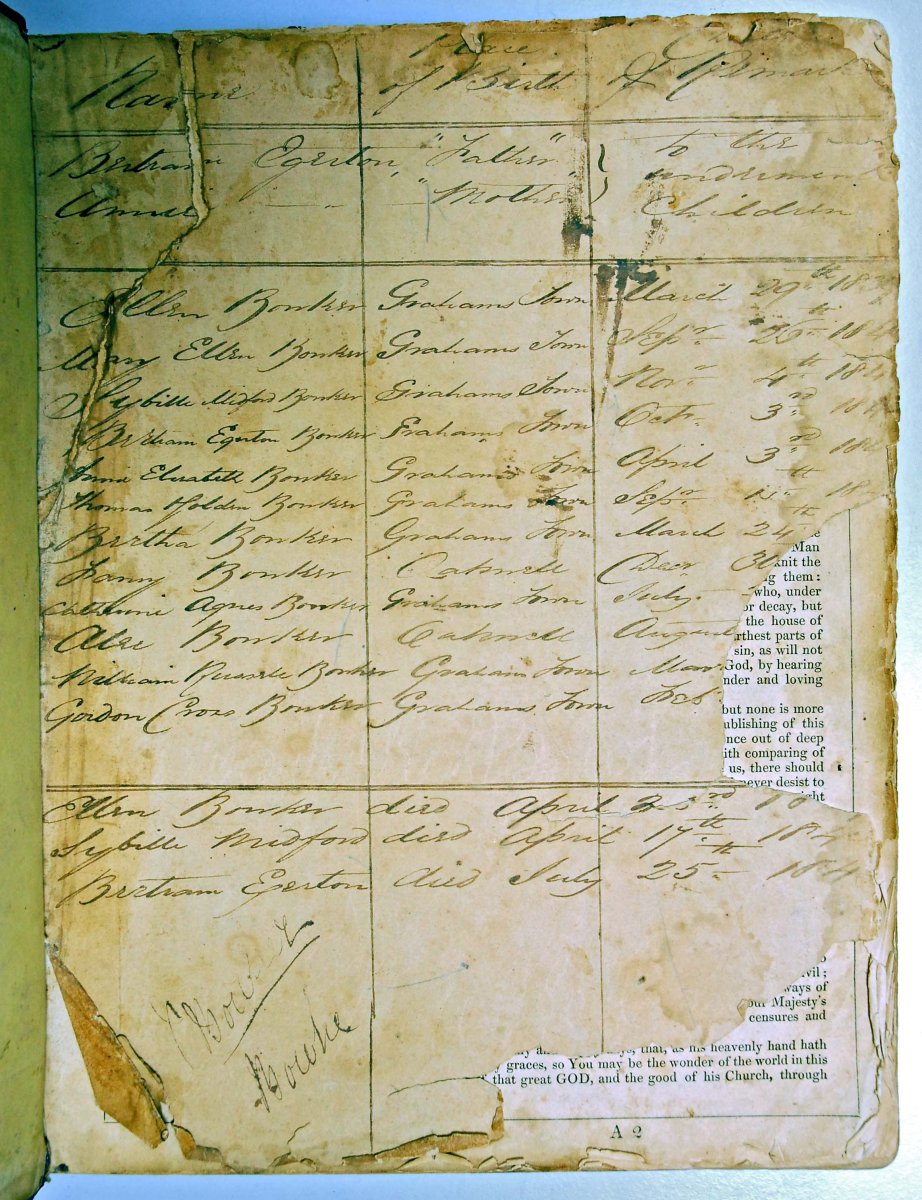 Name Place of Birth & Remarks
Bertram Egerton, "Father" to the
Annie " " "Mother" underment
Children
Ellen Bowker Grahams Town March 29th 18
Mary Ellen Bowker Grahams Town Sepr 18
Sybille Midford Bowker Grahams Town Novr 4th 18
Bertram Egerton Bowker Grahams Town Octr 3rd 18
Anna Elizabeth Bowker Grahams Town April 3rd 18
Thomas Holden Bowker Grahams Town Sepr 18
Bertha Bowker Grahams Town March 24th
Fanny Bowker Oakwell Decr 30
Catherine Agnes Bowker Grahams Town July
Alice Bowker Oakwell August
William Russell Bowker Grahams Town Mar
Gordon Cross Bowker Grahams Town Feb
Ellen Bowker died April 18
Sybille Midford died April 17th 18
Bertram Egerton died July 25th 18
Bowker
Man
knit the
g them:
who, under
or decay, but
the house of
rthest parts of
sin, as will not
God, by hearing
nder and loving
but none is more
ublishing of this
nce out of deep
ith comparing of
us, there should
never desist to
ight
vil;
ways of
our Majesty's
censures and
that, as his heavenly hand hath
graces, so You may be the wonder of the world in this
that great GOD, and the good of his Church, through
A 2